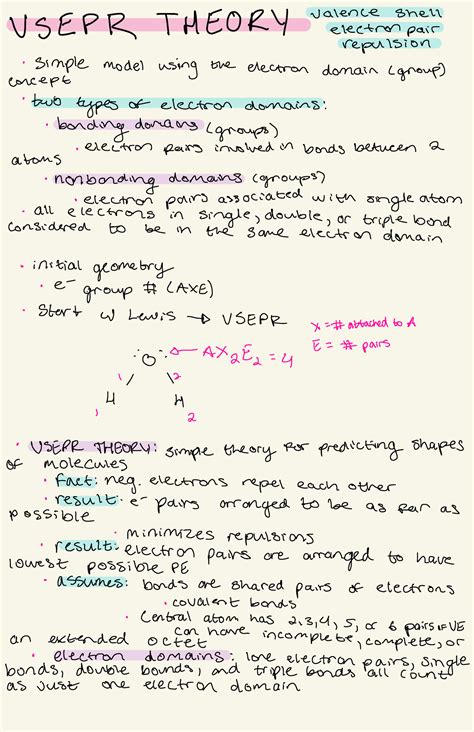 VSEPR THEORY
valence shell
electron pair
repulsion
· simple model using the electron domain (group)
concept
· two types of electron domains:
· bonding domains (groups)
· electron pairs involved in bonds between 2
atoms
· nonbonding domains (groups)
· electron pairs associated with single atom
· all electrons in single, double, or triple bond
considered to be in the same electron domain
· initial geometry
· e⁻ group # (AXE)
· Start w Lewis → VSEPR
X = # attached to A
E = # pairs
O ← AX₂E₂ = 4
1 2
H H
1 2
· VSEPR THEORY: simple theory for predicting shapes
of molecules
· Fact: neg. electrons repel each other
· result: e⁻ pairs arranged to be as far as
possible
· minimizes repulsions
· result: electron pairs are arranged to have
lowest possible PE
· assumes: bonds are shared pairs of electrons
· covalent bonds
· Central atom has 2,3,4, 5, or 6 pairs of VE
can have incomplete, complete, or
an extended octet
· electron domains: lone electron pairs, single
bonds, double bounds, and triple bonds all count
as just one electron domain